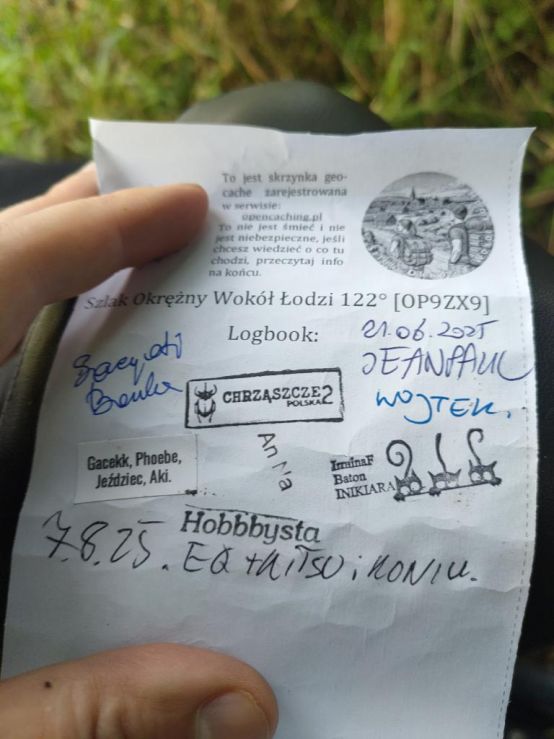 To jest skrzynka geo-
cache zarejestrowana
w serwisie:
opencaching.pl
To nie jest śmieć i nie
jest niebezpieczne, jeśli
chcesz wiedzieć o co tu
chodzi, przeczytaj info
na końcu.
Szlak Okrężny Wokół Łodzi 122° [OP9ZX9]
Logbook:
21.06.2025
JEANPAUL
WOJTEK.
CHRZĄSZCZE2
POLSKA
Gacekk, Phoebe,
Jeździec, Aki.
AnNa
IrminaF
Baton
INIKIARA
Hobbbysta
7.8.25. EQ +KITSU i KONIU.